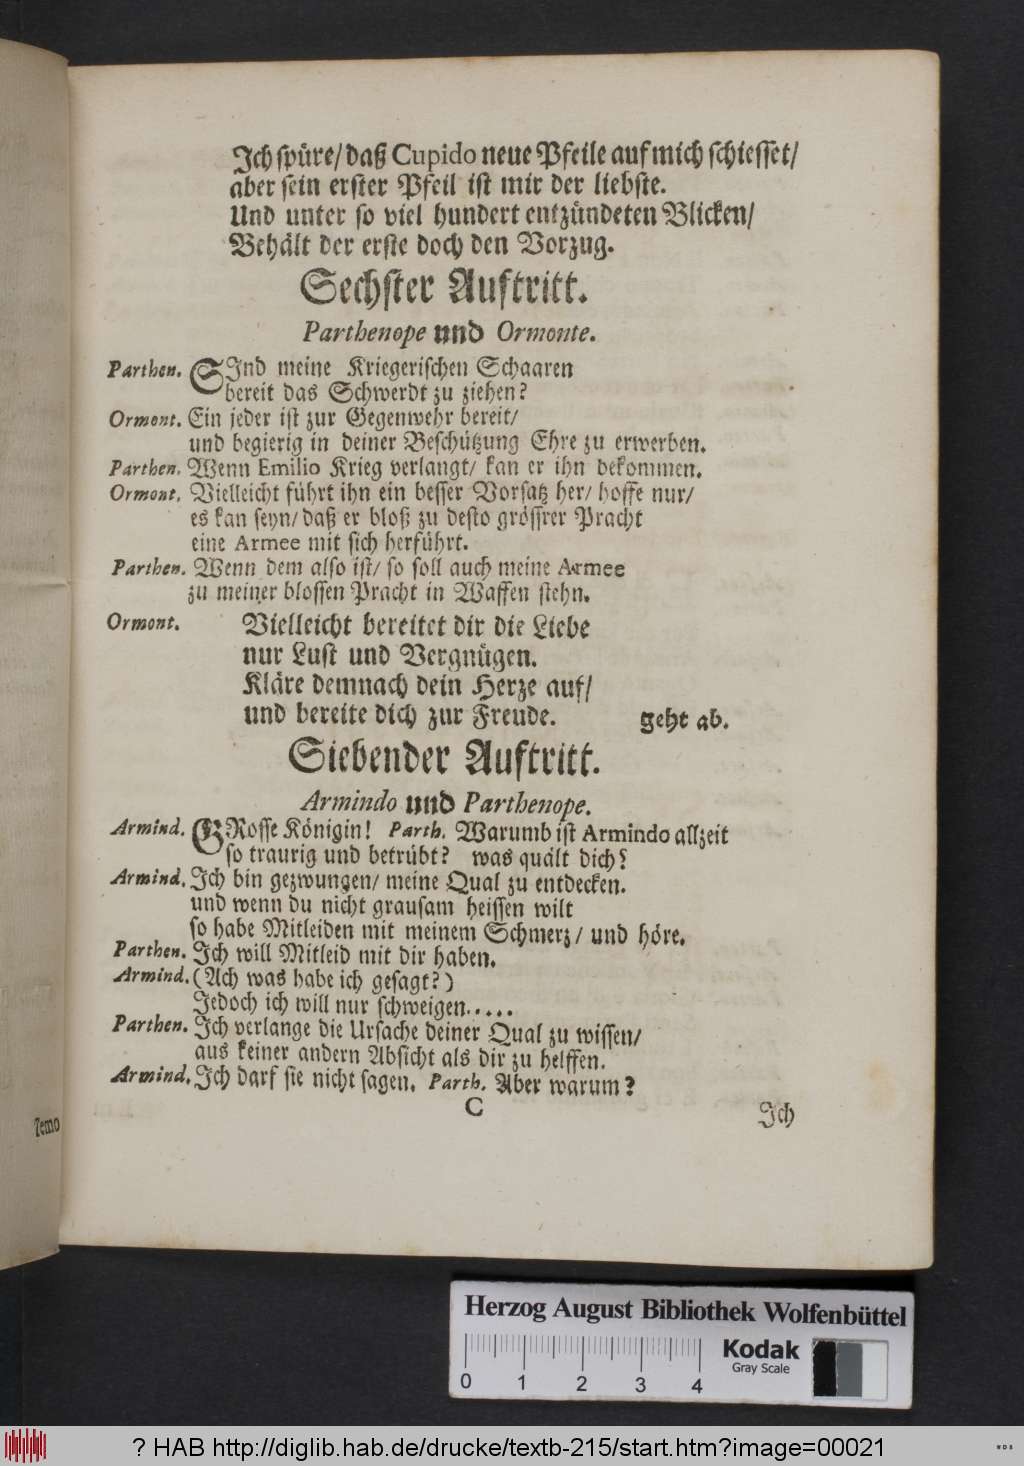 Ich spüre/ daß Cupido neue Pfeile auf mich schiesset/
aber sein erster Pfeil ist mir der liebste.
Und unter so viel hundert entzündeten Blicken/
Behält der erste doch den Vorzug.
Sechster Auftritt.
Parthenope und Ormonte.
Parthen. SInd meine Kriegerischen Schaaren
bereit das Schwerdt zu ziehen?
Ormont. Ein jeder ist zur Gegenwehr bereit/
und begierig in deiner Beschützung Ehre zu erwerben.
Parthen. Wenn Emilio Krieg verlangt/ kan er ihn bekommen.
Ormont. Vielleicht führt ihn ein besser Vorsatz her/ hoffe nur/
es kan seyn/ daß er bloß zu desto grössrer Pracht
eine Armee mit sich herführt.
Parthen. Wenn dem also ist/ so soll auch meine Armee
zu meiner blossen Pracht in Waffen stehn.
Ormont. Vielleicht bereitet dir die Liebe
nur Lust und Vergnügen.
Kläre demnach dein Herze auf/
und bereite dich zur Freude. geht ab.
Siebender Auftritt.
Armindo und Parthenope.
Armind. GRosse Königin! Parth. Warumb ist Armindo allzeit
so traurig und betrübt? was quält dich?
Armind. Ich bin gezwungen/ meine Qual zu entdecken.
und wenn du nicht grausam heissen wilt
so habe Mitleiden mit meinem Schmerz/ und höre.
Parthen. Ich will Mitleid mit dir haben.
Armind. (Ach was habe ich gesagt?)
Jedoch ich will nur schweigen.....
Parthen. Ich verlange die Ursache deiner Qual zu wissen/
aus keiner andern Absicht als dir zu helffen.
Armind. Ich darf sie nicht sagen. Parth. Aber warum?
C Ich
Herzog August Bibliothek Wolfenbüttel
Kodak
Gray Scale
0 1 2 3 4
? HAB http://diglib.hab.de/drucke/textb-215/start.htm?image=00021